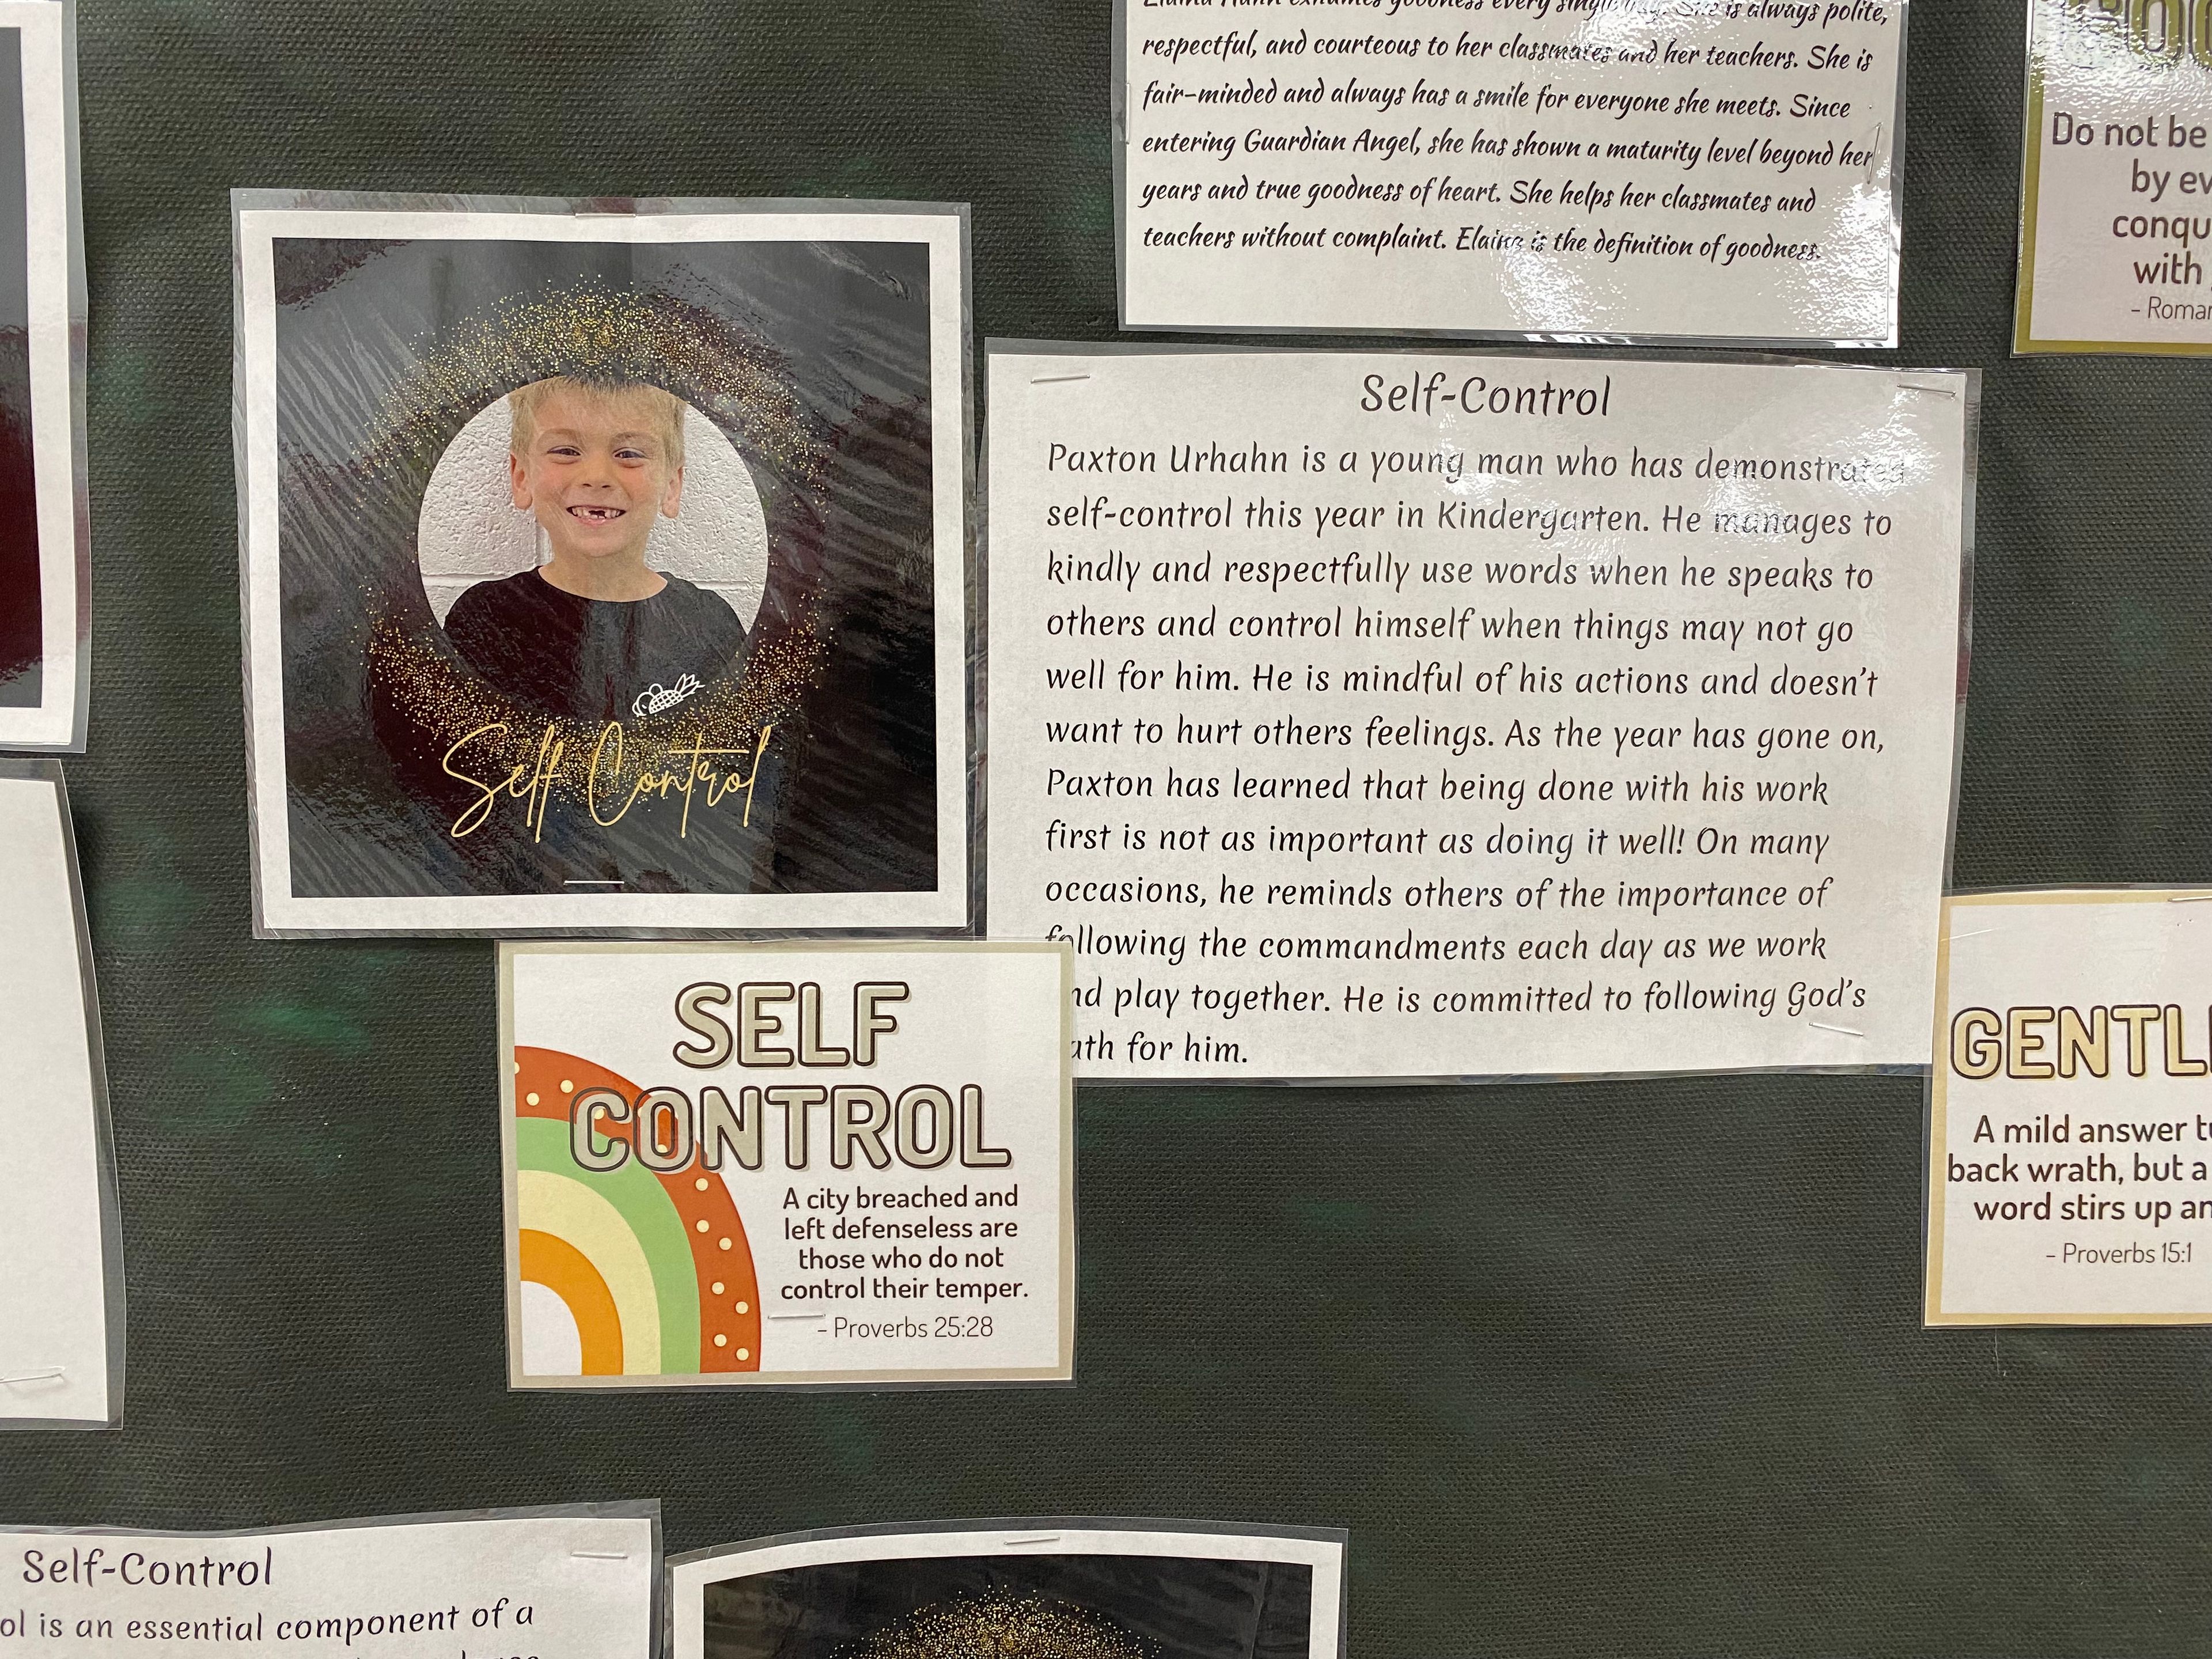 every single day. She is always polite,
respectful, and courteous to her classmates and her teachers. She is
fair-minded and always has a smile for everyone she meets. Since
entering Guardian Angel, she has shown a maturity level beyond her
years and true goodness of heart. She helps her classmates and
teachers without complaint. Elaina is the definition of goodness.
Do not be
by ev
conqu
with
- Roman
Self Control
Self-Control
Paxton Urhahn is a young man who has demonstrated
self-control this year in Kindergarten. He manages to
kindly and respectfully use words when he speaks to
others and control himself when things may not go
well for him. He is mindful of his actions and doesn't
want to hurt others feelings. As the year has gone on,
Paxton has learned that being done with his work
first is not as important as doing it well! On many
occasions, he reminds others of the importance of
following the commandments each day as we work
nd play together. He is committed to following God's
ath for him.
SELF
CONTROL
A city breached and
left defenseless are
those who do not
control their temper.
- Proverbs 25:28
GENTL
A mild answer tu
back wrath, but a
word stirs up an
- Proverbs 15:1
Self-Control
ol is an essential component of a